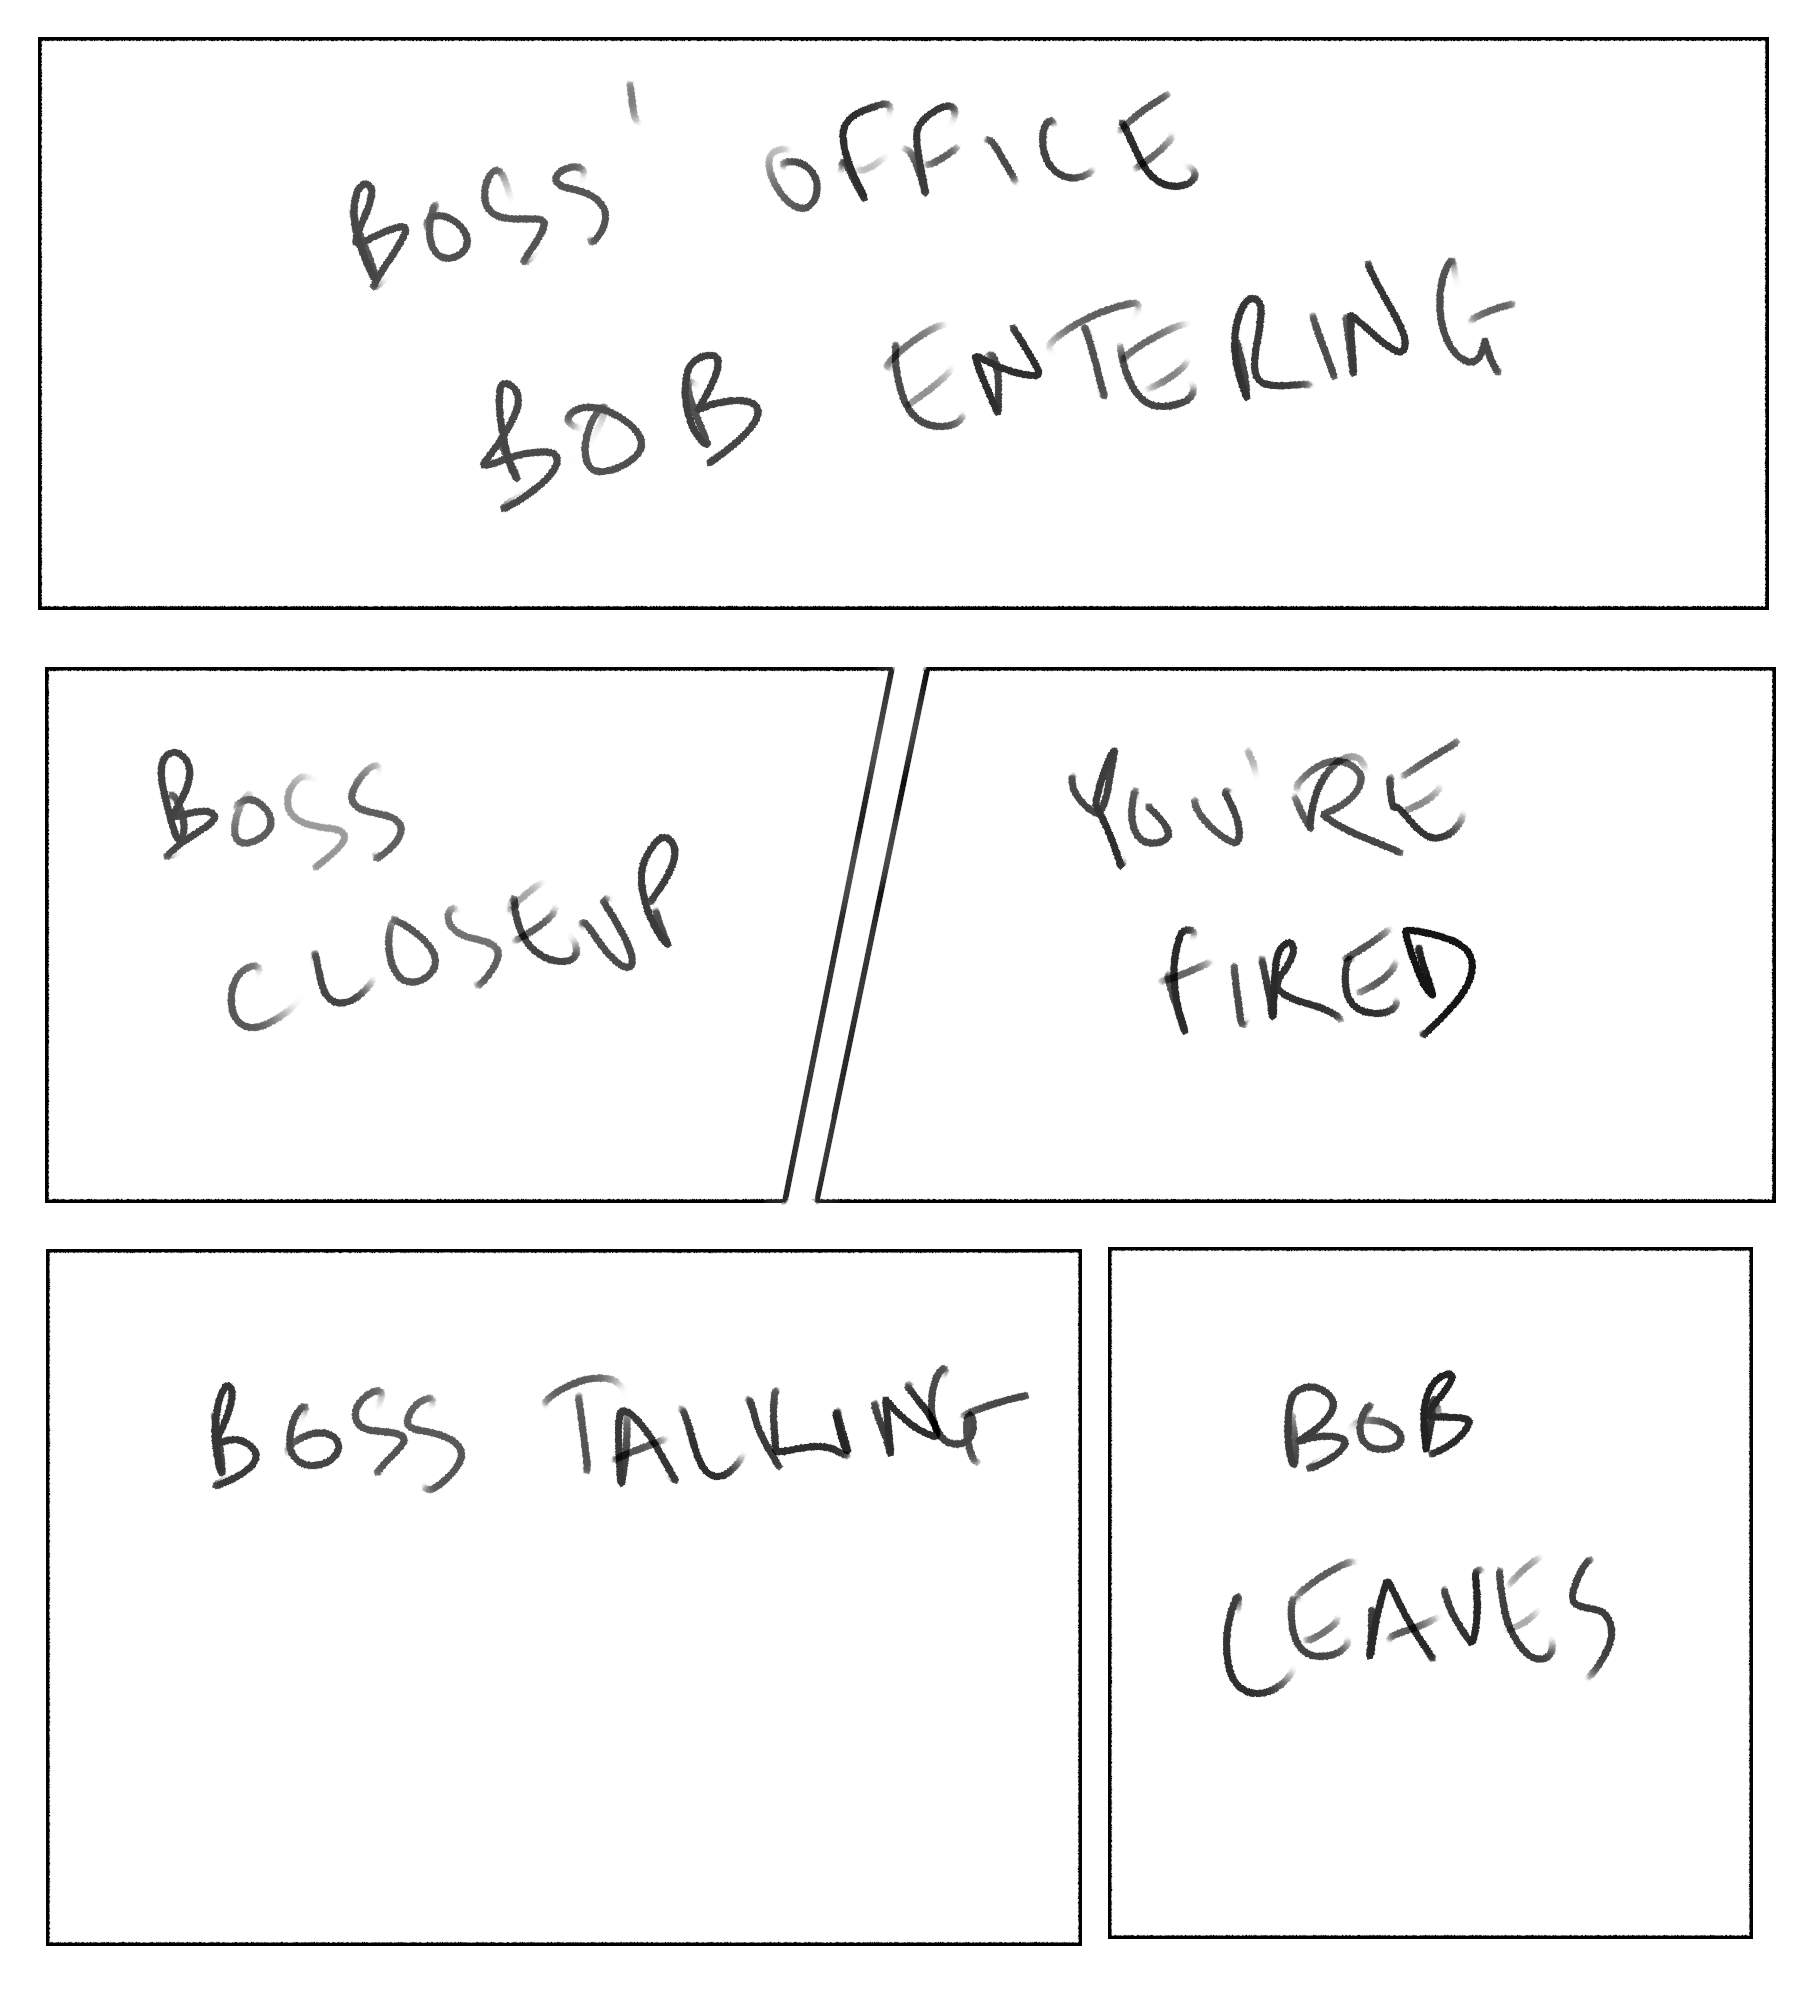 BOSS' OFFICE
BOB ENTERING
BOSS
CLOSEUP
YOU'RE
FIRED
BOSS TALKING
BOB
LEAVES